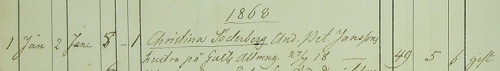 1868
1 Jan 2 Jan 5 - 1 Christina Söderberg And. Pet. Janssons
hustru på Galts Allmng. 27/7 18 — 49 5 6 gift